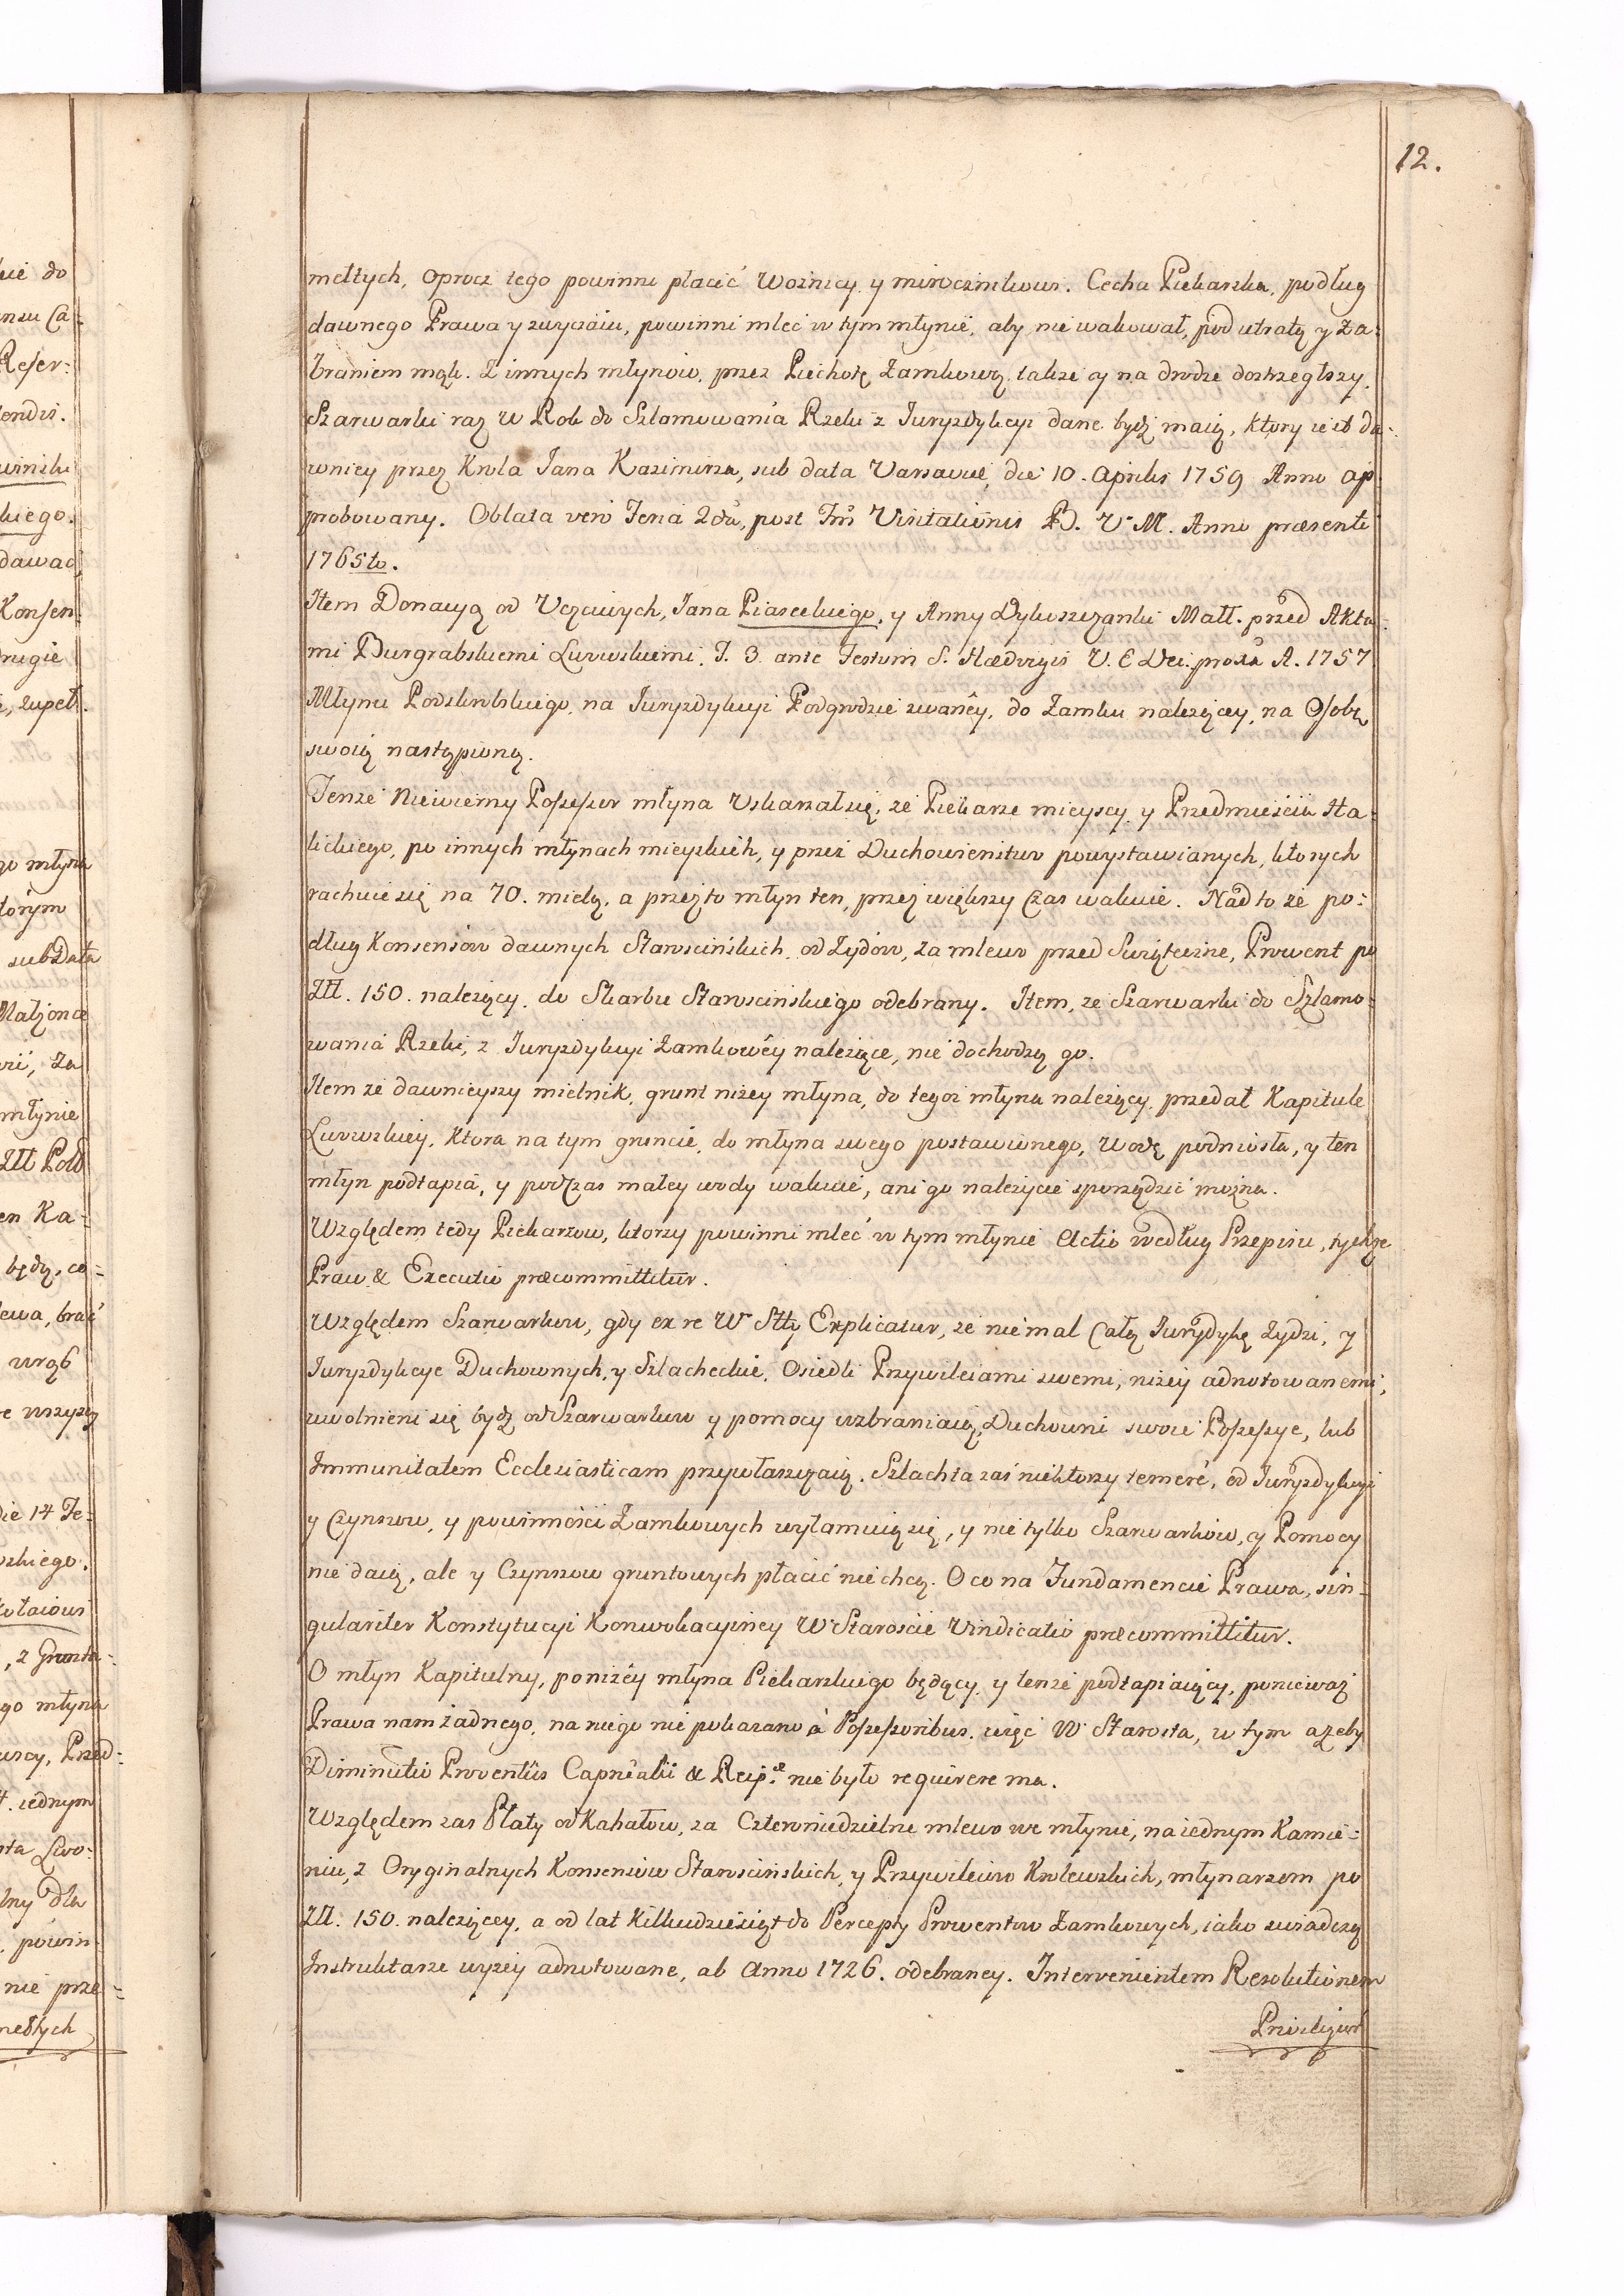 12.
mełtych, oprocz tego powinni płacić Woźnicy y mirocznikowi. Cecha Piekarska, podług
dawnego Prawa y zwyczaiu, powinni mleć w tym młynie, aby nie wakował, pod utratą y za-
braniem mąk. Z innych młynow, przez Piechotę Zamkową, także y na drodze dostrzegłszy.
Szarwarki raz w Rok do Szlamowania Rzeki z Juryzdykcyi dane bydź maią, ktory iest da-
wniey przez Krola Jana Kazimirza, sub data Varsaviæ, die 10. Aprilis 1759 Anno ap-
probowany. Oblata vero Feria 2da, post Fm Visitationis B. V. M. Anno præsenti
1765to.
Item Donacyą od Uczciwych, Jana Piaseckiego, y Anny Małł. przed Akta-
mi Burgrabskiemi Lwowskiemi, F. 3. ante Festum S. Hædvigis V. E Dei. proxa A. 1757
Młynu na Juryzdykcyi Podgrodzie zwaney, do Zamku należącey, na Osobę
swoią nastąpioną.
Tenże Niewierny Possessor młyna Uskarzał się, że Piekarze mieyscy y Przedmieścia Ha-
lickiego, po innych młynach mieyskich, y przez Duchowieństwo powystawianych, ktorych
rachuie się na 70. mielą, a przez to młyn ten, przez większy czas wakuie. Nadto że po-
dług Konsensow dawnych Starościńskich, od Żydów, za mlewo przed Swiąteczne, Prowent po
Złł. 150. należący, do Skarbu Starościńskiego odebrany. Item, że Szarwarki do Szlamo-
wania Rzeki, z Juryzdykcyi Zamkowéy należące, nie dochodzą go.
Item że dawnieyszy mielnik, grunt niżey młyna, do tegoż młyna należący, przedał Kapitule
Lwowskiey, Ktora na tym gruncie, do młyna swego postawionego, Wodę podniosła, y ten
młyn podtapia, y podczas małey wody wakuie, ani go należycie sporządzić można.
Względem tedy Piekarzow, ktorzy powinni mleć w tym młynie Actio według Przepisu, tychże
Praw & Executio præcommittitur.
Względem Szarwarkow, gdy ex re W Stty Explicatur, że niemal Całą Jurydykę Żydzi, y
Juryzdykcye Duchownych, y Szlacheckie, Osiedli Przywileiami swemi, niżey adnotowanemi,
uwolnieni się bydź od Szarwarkow y pomocy wzbraniaią, Duchowni swoie Possessye, lub
Immunitatem Ecclesiasticam przywłaszczaią. Szlachta zaś niektorzy temeré, od Juryzdykcyi
y Czynszow, y powinności Zamkowych wyłamuią się, y nie tylko Szarwarków, y Pomocy
nie daią, ale y Czynszow gruntowych płacić nie chcą. O co na Fundamencie Prawa, sin-
gulariter Konstytucyi Konwokacyiney W Staroscie Vindicatio præcommittitur.
O młyn Kapitulny, poniżéy młyna Piekarskiego będący, y tenże podtapiaiący, ponieważ
Prawa nam żadnego, na niego nie pokazano á Possessoribus, więc W Starosta, w tym ażeby
Diminutio Proventûs & Reip.æ nie było requirere ma.
Względem zas Płaty od Kahałow, za Czteroniedzielne mlewo we młynie, na iednym Kamie-
niu, z Oryginalnych Konsensow Starościńskich, y Przywileiow Krolewskich, młynarzom po
Złł. 150. należącey, a od lat Kilkudziesiąt do Percepty Prowentow Zamkowych, iako swiadczą
Instruktarze wyżey adnotowane, ab Anno 1726. odebraney. Intervenientem Resolutionem